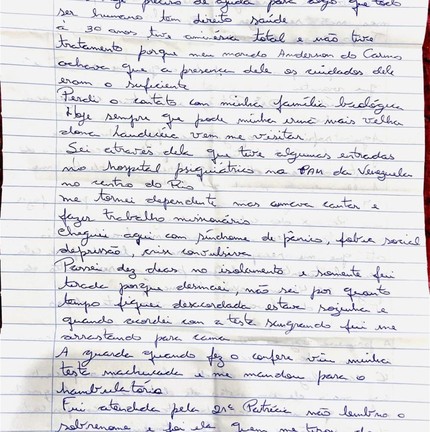 preciso de ajuda para algo que todo
ser humano tem direito saúde
à 30 anos tive anivéria total e não tive
tratamento porque meu marido Anderson do Carmo
achava que a presença dele os cuidados dele
eram o suficiente
Perdi o contato com minha família biológica
Hoje sempre que pode minha irmã mais velha
dona vem me visitar
Sei através dela que tive algumas entradas
no hospital psiquiátrico na PAM da Venezuela
no centro do Rio
me tornei dependente mas amava cantar e
fazer trabalho missionário
cheguei aqui com síndrome de pânico, fobia social
depressão, crise convulsiva
Passei dez dias no isolamento e somente fui
tirada porque desmaiei, não sei por quanto
tempo fiquei desacordada estava sozinha e
quando acordei com a testa sangrando fui me
arrastando para cama
A guarda quando fez o confere viu minha
testa machucada e me mandou para o
hambulatório
Fui atendida pela Drª Patrícia não lembro o
sobrenome e foi ela quem me tirou do